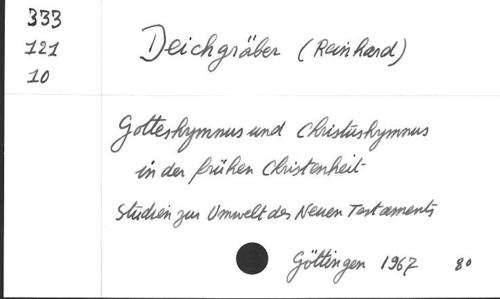 333
121
10
Deichgräber (Reinhard)
Gotteshymnus und Christushymnus
in der frühen Christenheit
Studien zur Umwelt des Neuen Testaments
Göttingen 1967 8°